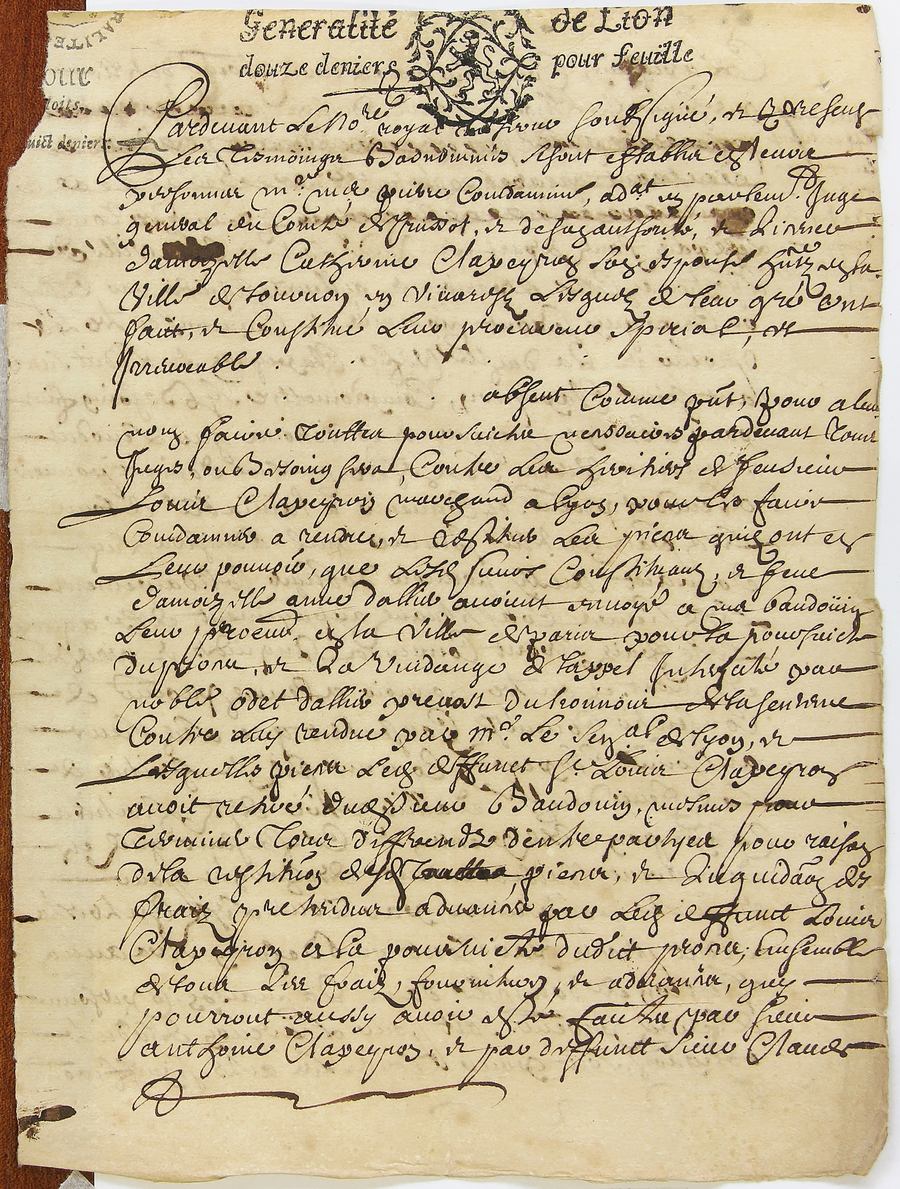 Generalité de Lion
douze deniers pour feuille
Pardevant Le No.re royal soubsigné, et presens
Les Tesmoings Basnommés se sont establis
personnes m.e pierre Condamine, ad.at en parlem.t Juge
general du Comté de, et de son authorité,
damoizelle Catherine Clapeyron son espouse de la
Ville de tournon en Vivarestz Lesquelz de leur gré ont
fait, et Constitué Leur procureur special, et
Irrevocable
absent Comme pnt, pour a leur
nom faire touttes poursuictes necessaires pardevant tous
Juges, ou Besoing sera, Contre Les heritiers de feu sieur
Louis Clapeyron marchand a Lyon, pour les faire
Condamner a rendre, et restituer Les pieces quilz ont en
Leur pouvoir, que Lesd sieurs Constituans, et feue
damoizelle anne dallier avoient envoyé a m.e baudouin
Leur procur en la Ville de paris pour la poursuicte
du proces, et La Vuidange de lappel Interjeté par
noble odet dallier prevost du lionnois de la sentence
Contre Luy rendue par m.r Le Sen.al de lyon, et
Lesquelles pieces Led deffunct S.r Louis Clapeyron
avoit retiré dud sieur Baudouin, mesmes pour
Terminer Tous differendz dentre partyes pour raison
de la restituon desd pieces, et Liquidaon des
fraiz pretendus advancés par Led deffunct Louis
Clapeyron en la poursuicte dudict proces, Ensemble
de tous Les fraiz, fournitures, et advances, quy
pourront aussy avoir esté faictes par sieur
anthoine Clapeyron, et par deffunct sieur Claude